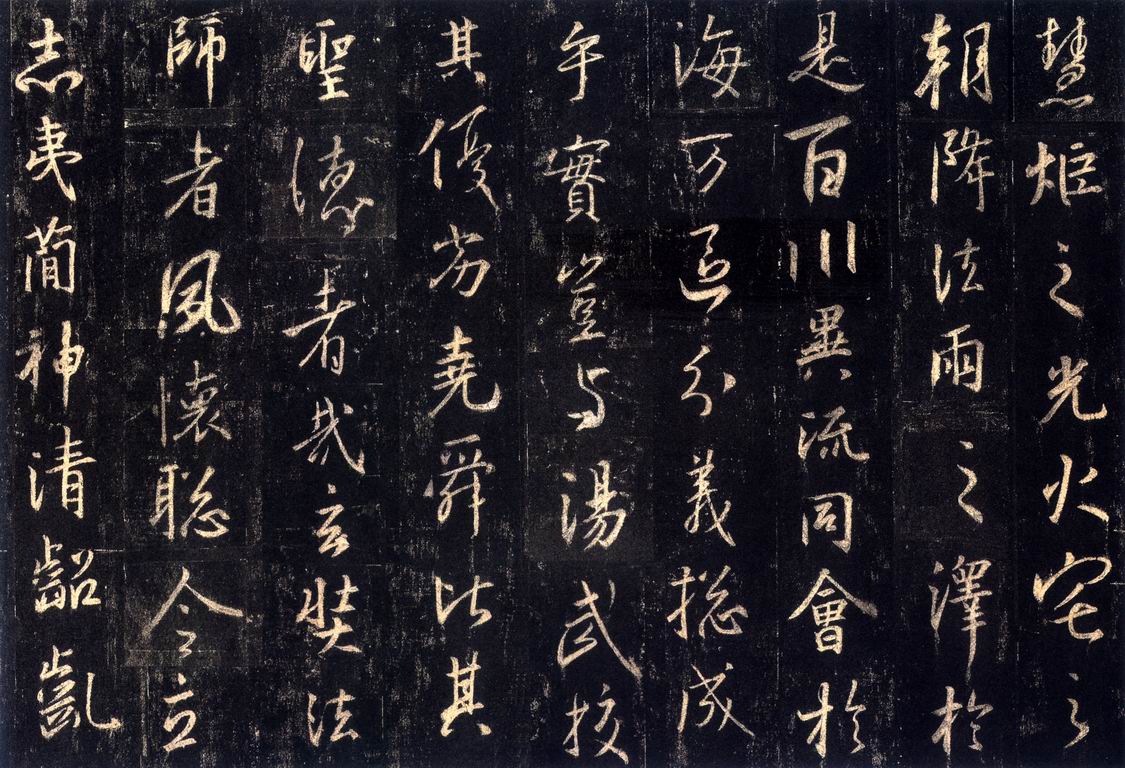 慧炬之光火宅之
朝降法雨之澤於
是百川異流同會於
海万區分義揔成
乎實豈与湯武校
其優劣堯舜比其
聖德者哉玄奘法
師者夙懷聡令立
志夷蕳神清齠齓